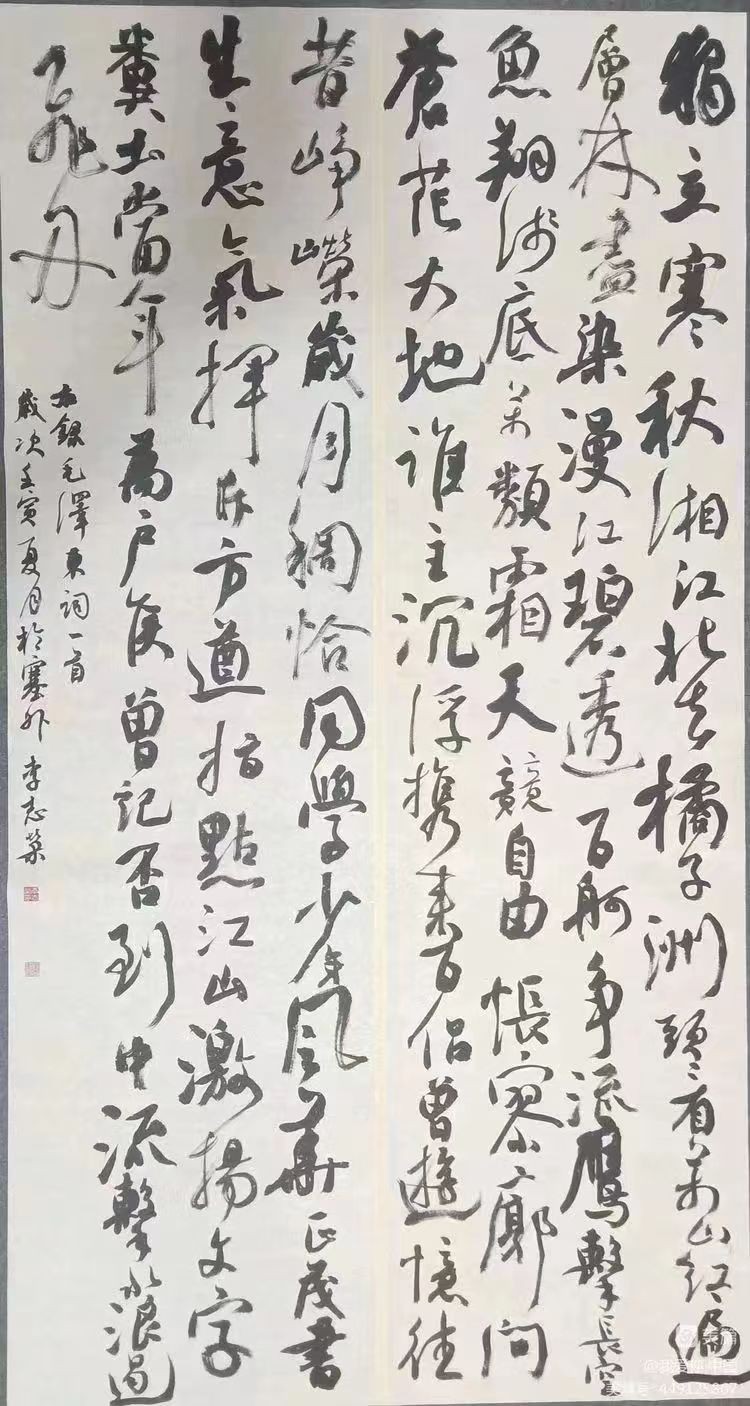 獨立寒秋湘江北去橘子洲頭看万山红遍
層林盡染漫江碧透百舸争流鷹擊長空
魚翔浅底万類霜天競自由悵寥廓问
蒼茫大地谁主沉浮携来百侣曾遊憶往
昔峥嶸歲月稠恰同學少年風華正茂書
生意氣揮斥方遒指點江山激揚文字
糞土當年萬户侯曾記否到中流擊水浪遏
飛舟
右錄毛澤東詞一首
歲次壬寅夏月於塞外 李志榮